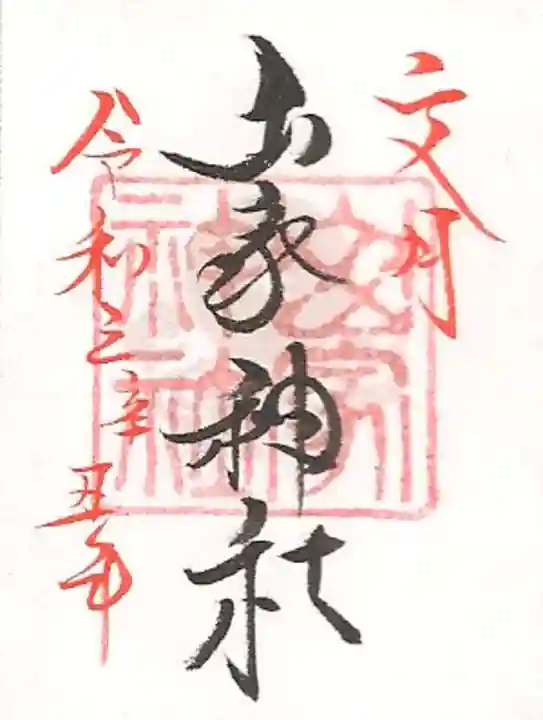 文月
家神社
令和三辛丑年